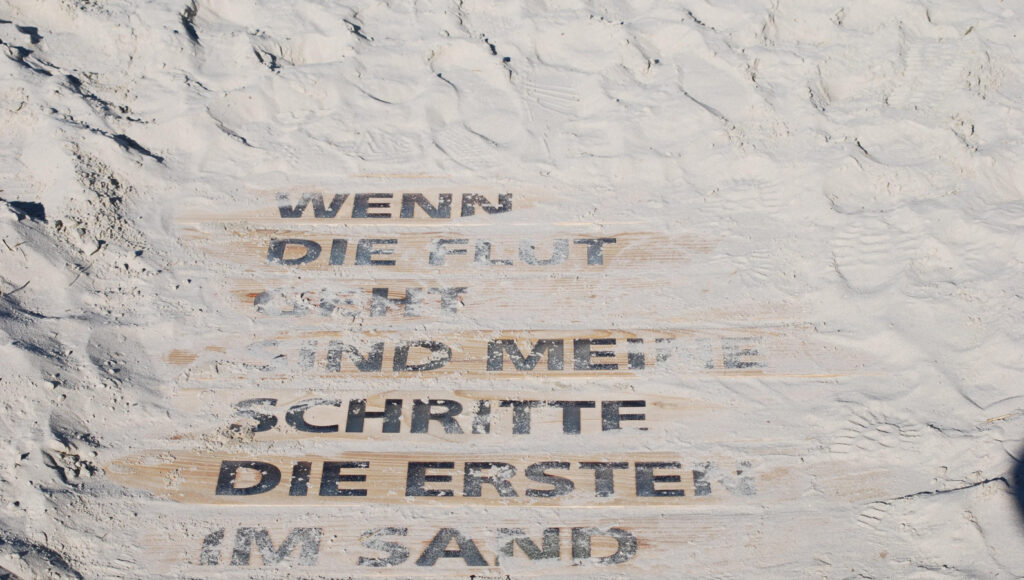 WENN
DIE FLUT
GEHT
SIND MEINE
SCHRITTE
DIE ERSTEN
IM SAND